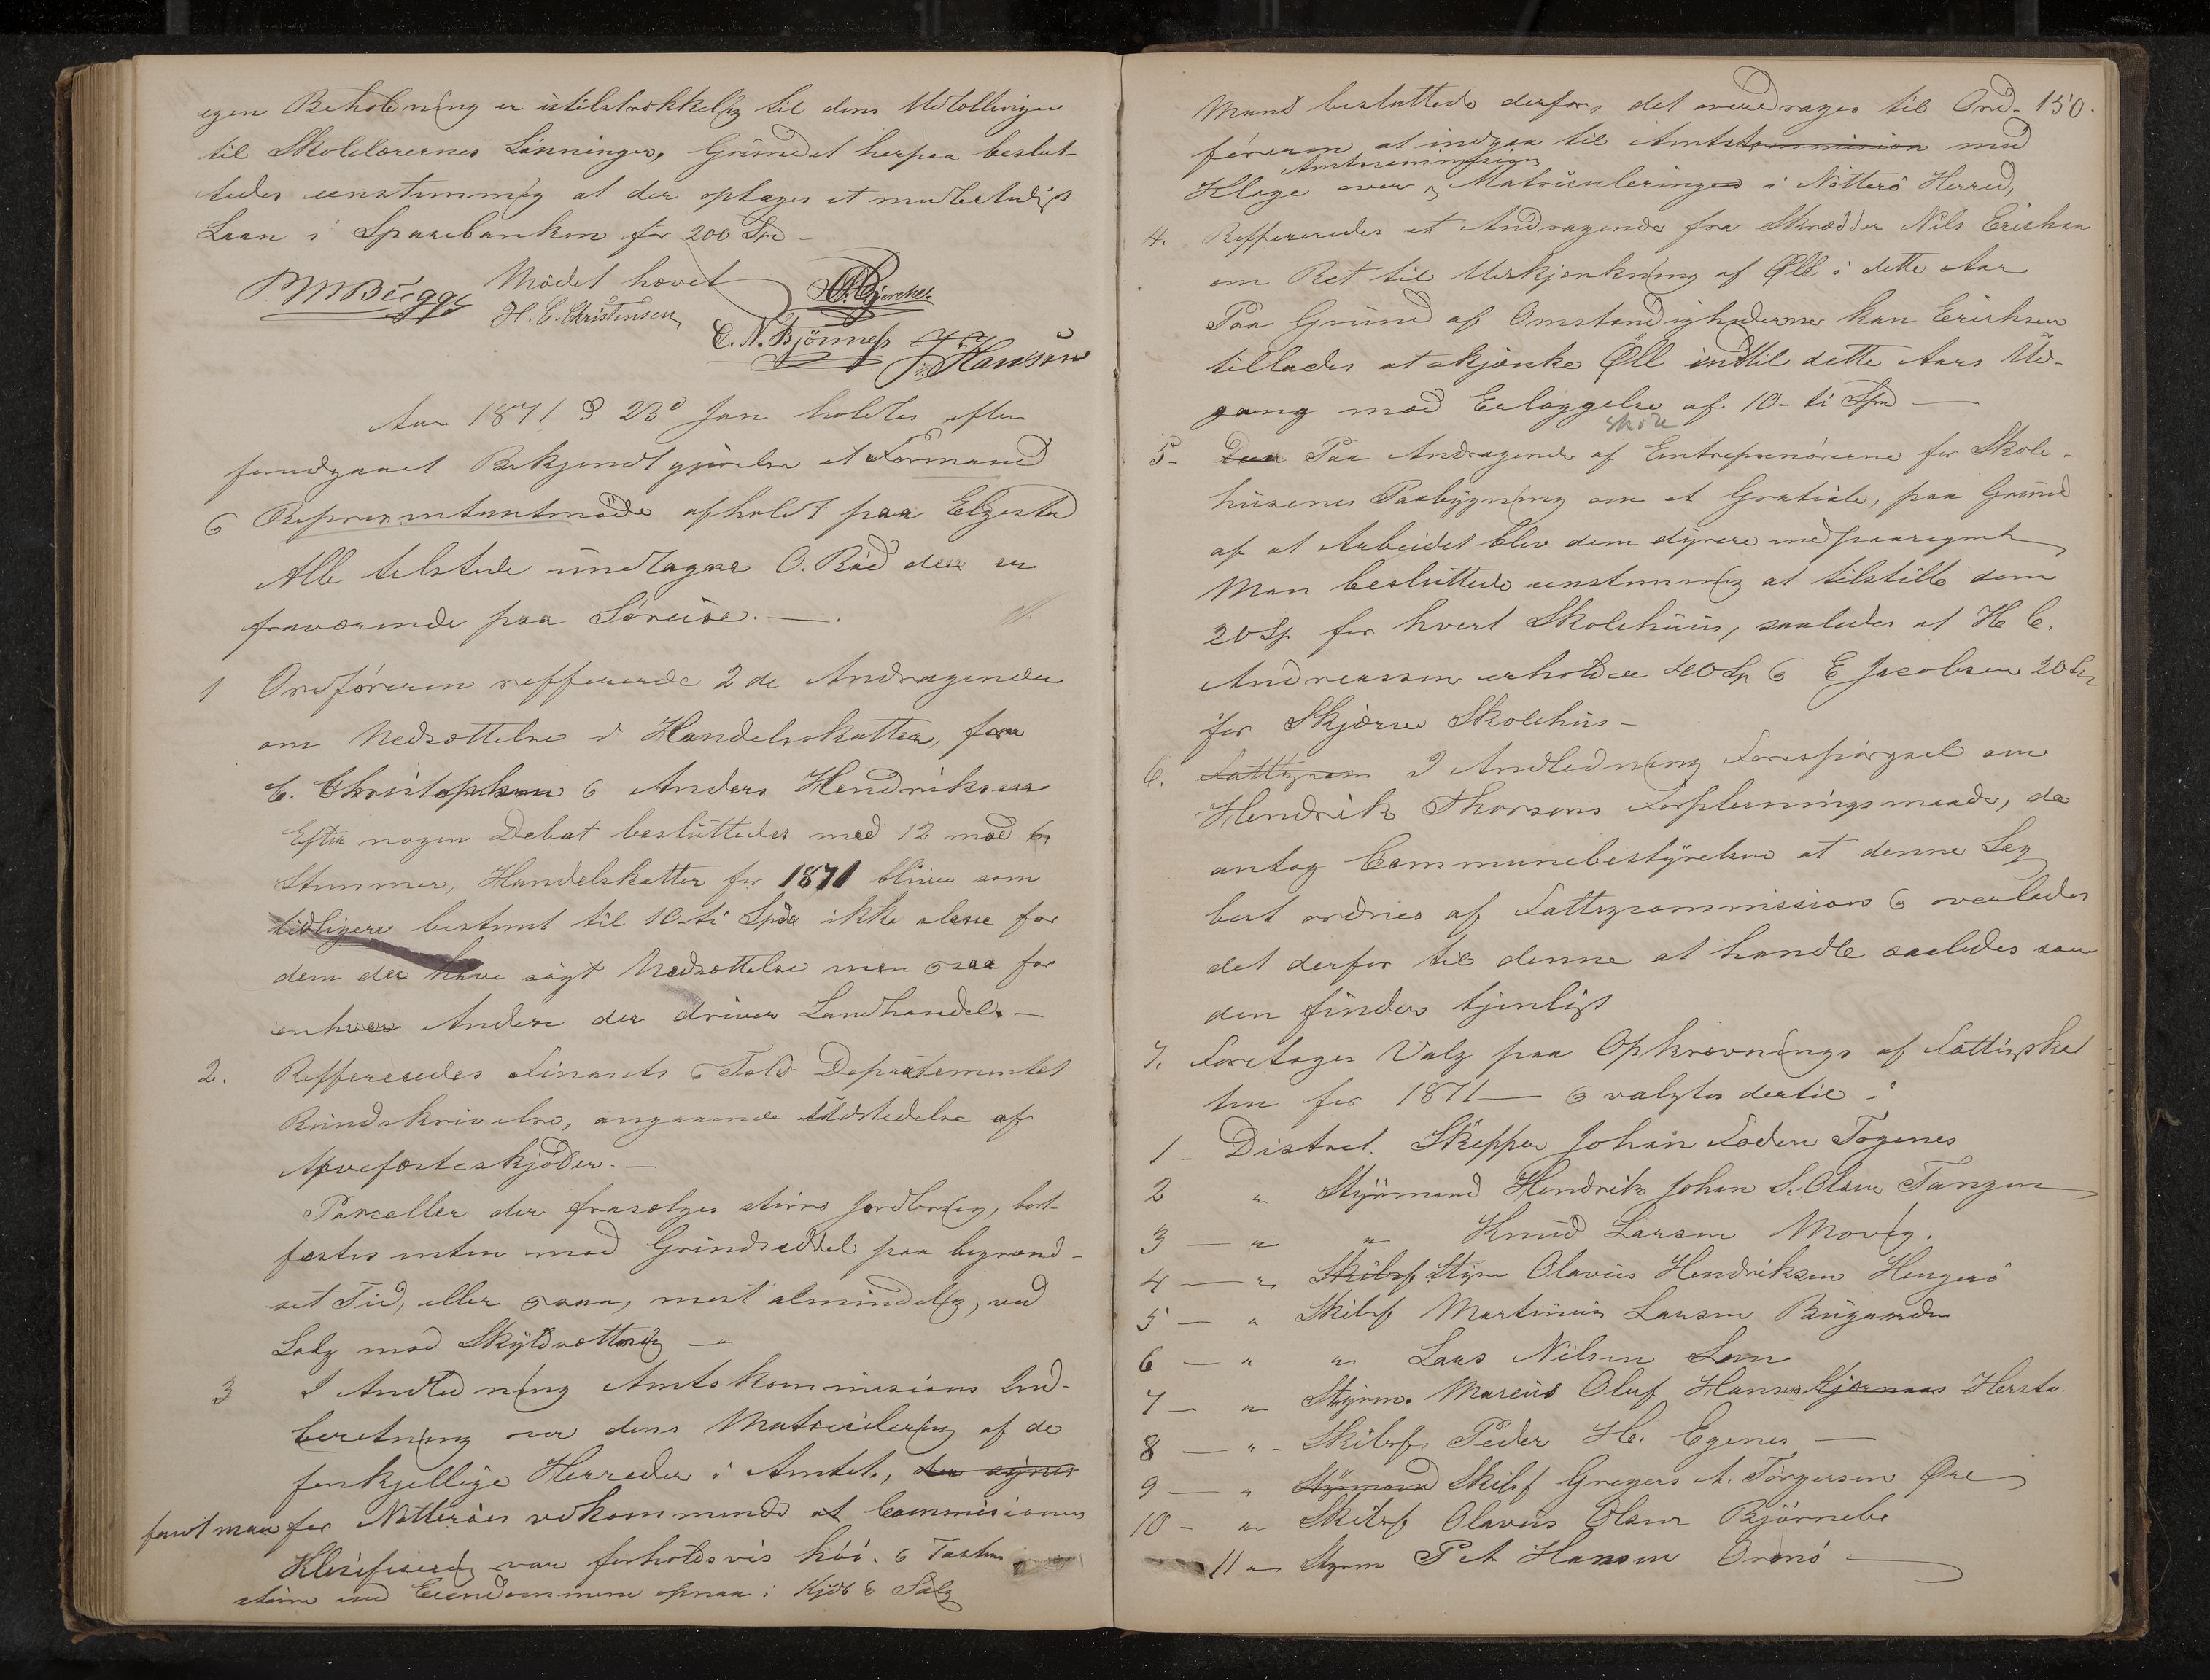 egen Beholdning er utilstrækkelig til dens Udtællinger
til Skolelærernes Lønninger. Grundet herpaa beslut-
tedes eenstemmig at der optages et midlertidigt
Laan i Sparebanken for 200 Spd
Mødet hævet
MMBugge H. C. Christensen O. Bjercke
C. N. Bjönness J. Hansen
Aar 1871 d 23d Jan holdtes efter
forudgaaet Bekjendtgjørelse et Formand
& Repræsentantmøde afholdt paa Elgestad
Alle tilstede undtagen O. Rød der er
fraværende paa Søreise. —
1 Ordføreren refererede 2de Andragender
om Nedsættelse i Handelsskatten, fra
C. Christophersen & Anders Hendriksen
Efter nogen Debat besluttedes med 12 mod 6
Stemmer, Handelskatten for 1871 bliver som
tidligere bestemt til 10-ti Spdr ikke alene for
dem der have søgt Nedsættelse men osaa for
enhver Anden der driver Landhandel. —
2. Reffereredes Finants & Told Departementet
Rundskrivelse, angaaende Udstedelse af
Arvefæsteskjøder. —
Parceller der frasælges större Jordbrug, bort-
fæstes enten mod Grundseddel paa begrænd-
set Tid, eller osaa, mest almindelig, ved
Salg mod Skyldsætning —
3 I Andledning Amtskommisions Ind-
beretning over dens Matriculering af de
forskjellige Herreder i Amtet, der synes
fandt man for Nötteröes vedkommende at Commisionens
Klasifisering var forholdsvis høi. & Taxten
större end Eiendommene opnaa i Kjöb & Salg
150.
Mand besluttede derfor, det overdrages til Ord-
föreren at indgaa til Amtskommision med
Amtscommission
Klage over Matriculeringen i Nötterö Herred,
4. Reffereredes et Andragende fra Skrædder Nils Erichsen
om Ret til Udskjænkning af Øll i dette Aar
Paa Grund af Omstændighederne kan Erichsen
tillades at skjænke Øll indtil dette Aars Ud-
gang mod Erlæggelse af 10- ti Spd —
5- Paa Andragende af Entreprenörerne for Skole-
husenes Paabygning om et Gratiale, paa Grund
af at Arbeidet blev dem dyrere end paaregnet
Man besluttede eenstemmig at tilstille dem
20 Sp for hvert Skolehuus, saaledes at H C.
Andreassen erholder 40 Sp & E Jacobsen 20 Sp
for Skjærve Skolehus —
6. Fattigcom I Andledning Forespörgsel om
Hendrik Thorsens Forpleiningsmaade, da
antog Communebestyrelsen at denne Sag
best ordnes af Fattigcommission & overlades
det derfor til denne at handle saaledes som
den finder tjenligt
7. Foretages Valg paa Opkrævnings af Fattigskat
ten for 1871 — & valgtes dertil:
1 - Distrct. Skipper Johan Föden Togenes
2 " Styrmand Hendrik Johan S. Olsen Tangen
3 — " " Knud Larsen Movig.
4 — " Skibsf Styrm Olavus Hendriksen Hengerö
5 — " Skibsf Martinius Larsen Bugaarden
6 — " " Lars Nilsen Lern
7 — " Styrm. Marcus Oluf Hansen Kjærnaas Hersta.
8 — " - Skibsf. Peder H. Egenes —
9 — " Styrmand Skibsf Gregers A. Törgersen Øre
10 - " Skibsf Olavus Olsen Björnebo
11 " Styrm P A Hansen Ormö —